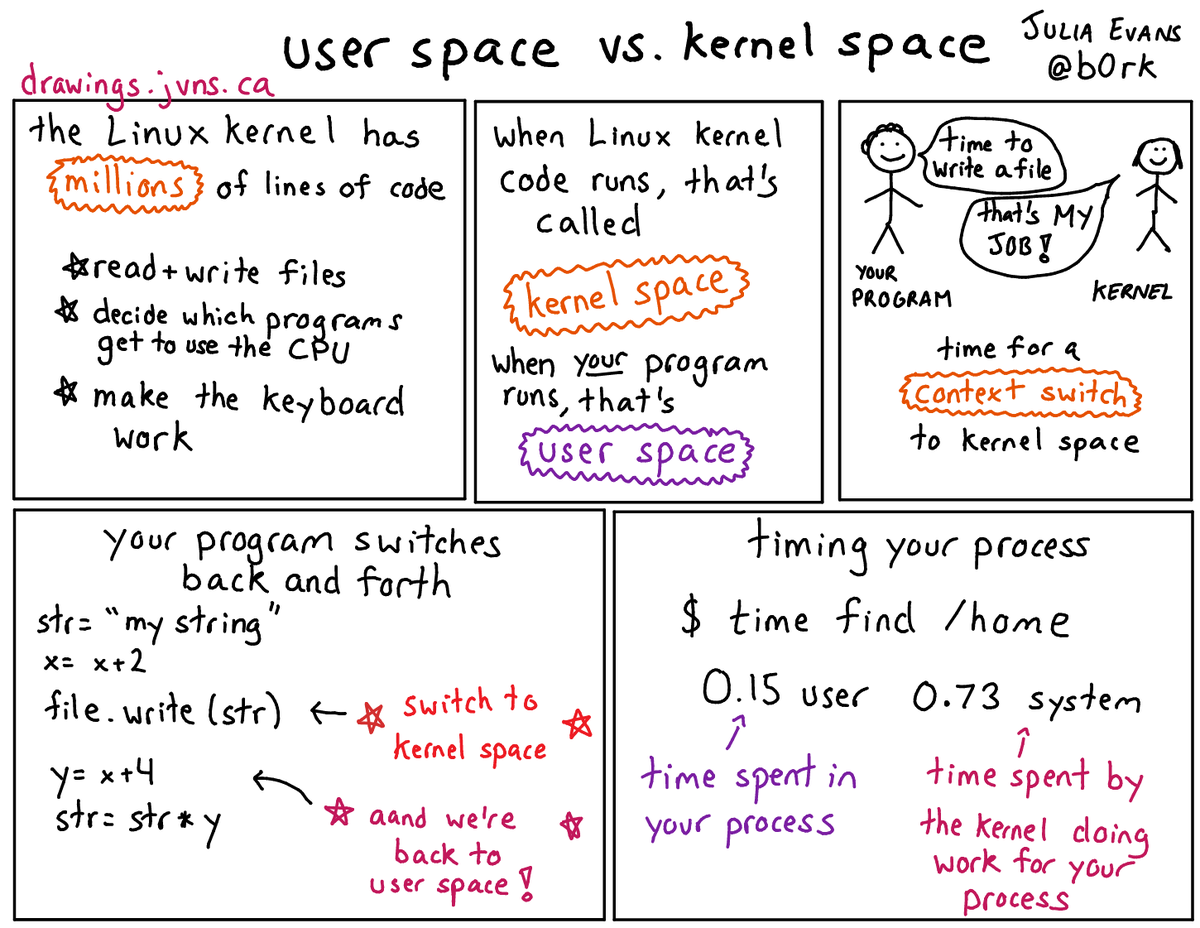 user space vs. kernel space
JULIA EVANS
@b0rk
drawings.jvns.ca
the Linux kernel has
millions of lines of code
read + write files
decide which programs
get to use the CPU
make the keyboard
work
when Linux kernel
code runs, that's
called
kernel space
when your program
runs, that's
user space
time to
write a file
that's MY
JOB!
YOUR
PROGRAM
KERNEL
time for a
context switch
to kernel space
your program switches
back and forth
str= "my string"
x= x+2
file.write (str)
switch to
kernel space
y= x+4
str= str * y
aand we're
back to
user space!
timing your process
$ time find /home
0.15 user 0.73 system
time spent in
your process
time spent by
the kernel doing
work for your
process